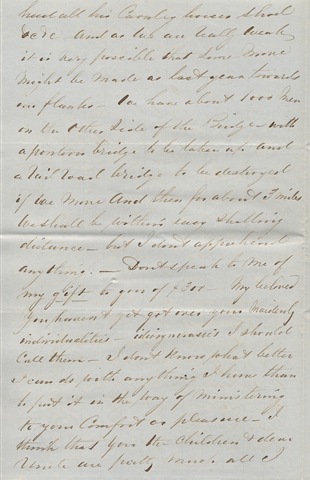 had all his Cavalry horses shod
&c &c And as we are really weak
it is very possible that some move
might be made as last year towards
our flanks - We have about 1000 men
on the other side of the Bridge with
a pontoon bridge to be taken up and
a rail road bridge to be destroyed
if we move And then for about 3 miles
we shall be within easy shelling
distance - but I don't apprehend
anything. - Don't speak to me of
my gift to you of $300 - My beloved
you haven't yet got over your Maidenly
individualities - idiosyncrasies I should
call them - I don't know what better
I can do, with anything I have than
to put it in the way of ministering
to your comfort or pleasure - I
think that you the children & dear
Uncle are pretty much all I